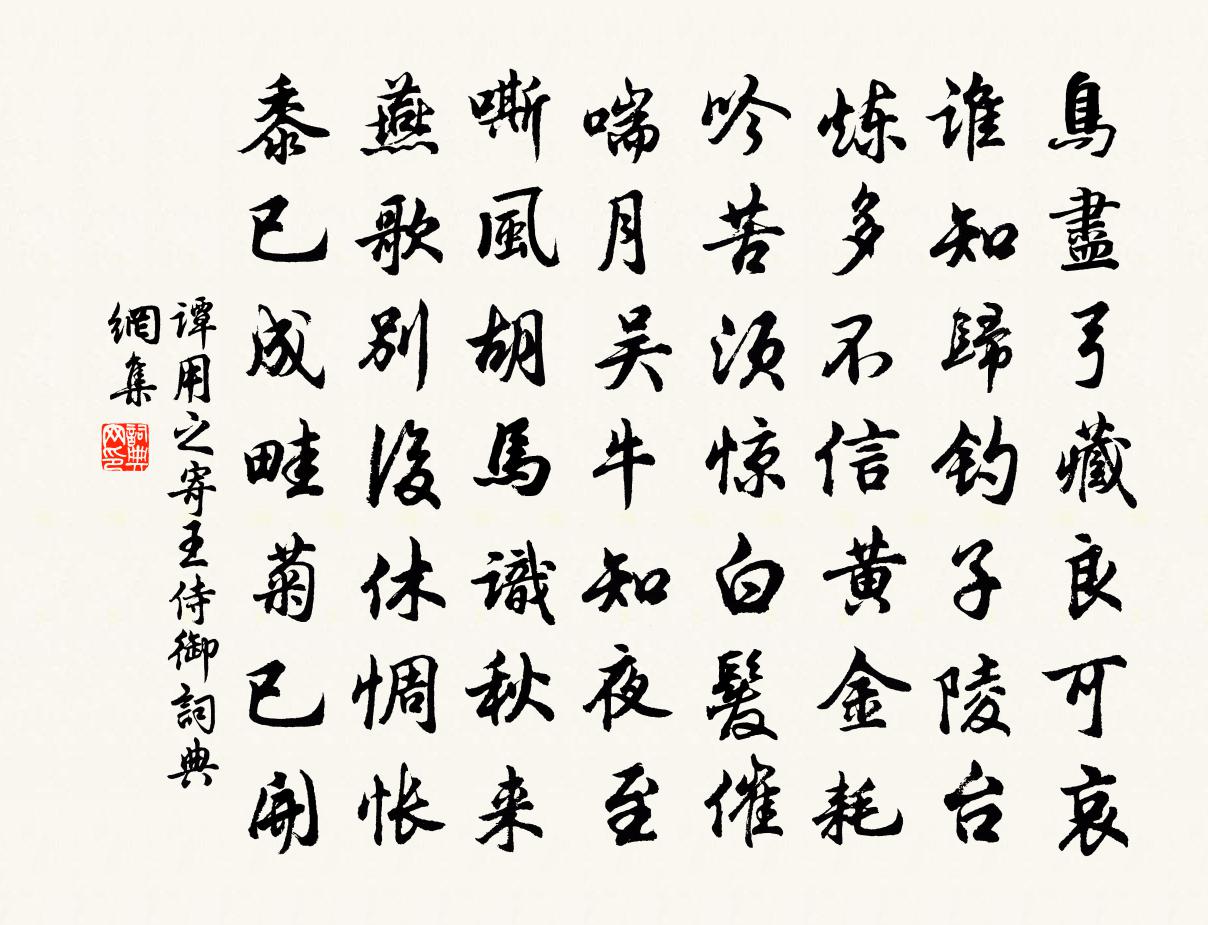 鳥盡弓藏良可哀
谁知歸钓子陵台
炼多不信黄金耗
吟苦须惊白髪催
喘月吴牛知夜至
嘶風胡馬識秋来
燕歌别後休惆怅
黍已成畦菊已開
谭用之寄王侍御詞典
網集
詞典
网印